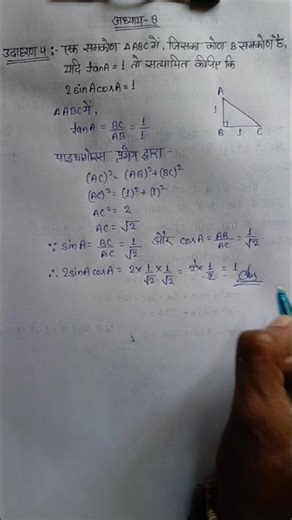 अध्याय-8
उदाहरण 4 :- एक समकोण ΔABC में, जिसका कोण B समकोण है,
यदि tanA = 1 तो सत्यापित कीजिए कि
2 sinA cosA = 1
ΔABC में,
tanA = BC/AB = 1/1
A
1
B 1 C
पाइथागोरस प्रमेय द्वारा -
(AC)² = (AB)² + (BC)²
(AC)² = (1)² + (1)²
AC² = 2
AC = √2
∵ sinA = BC/AC = 1/√2 और cosA = AB/AC = 1/√2
∴ 2sinA cosA = 2 × 1/√2 × 1/√2 = 2 × 1/2 = 1 Ans